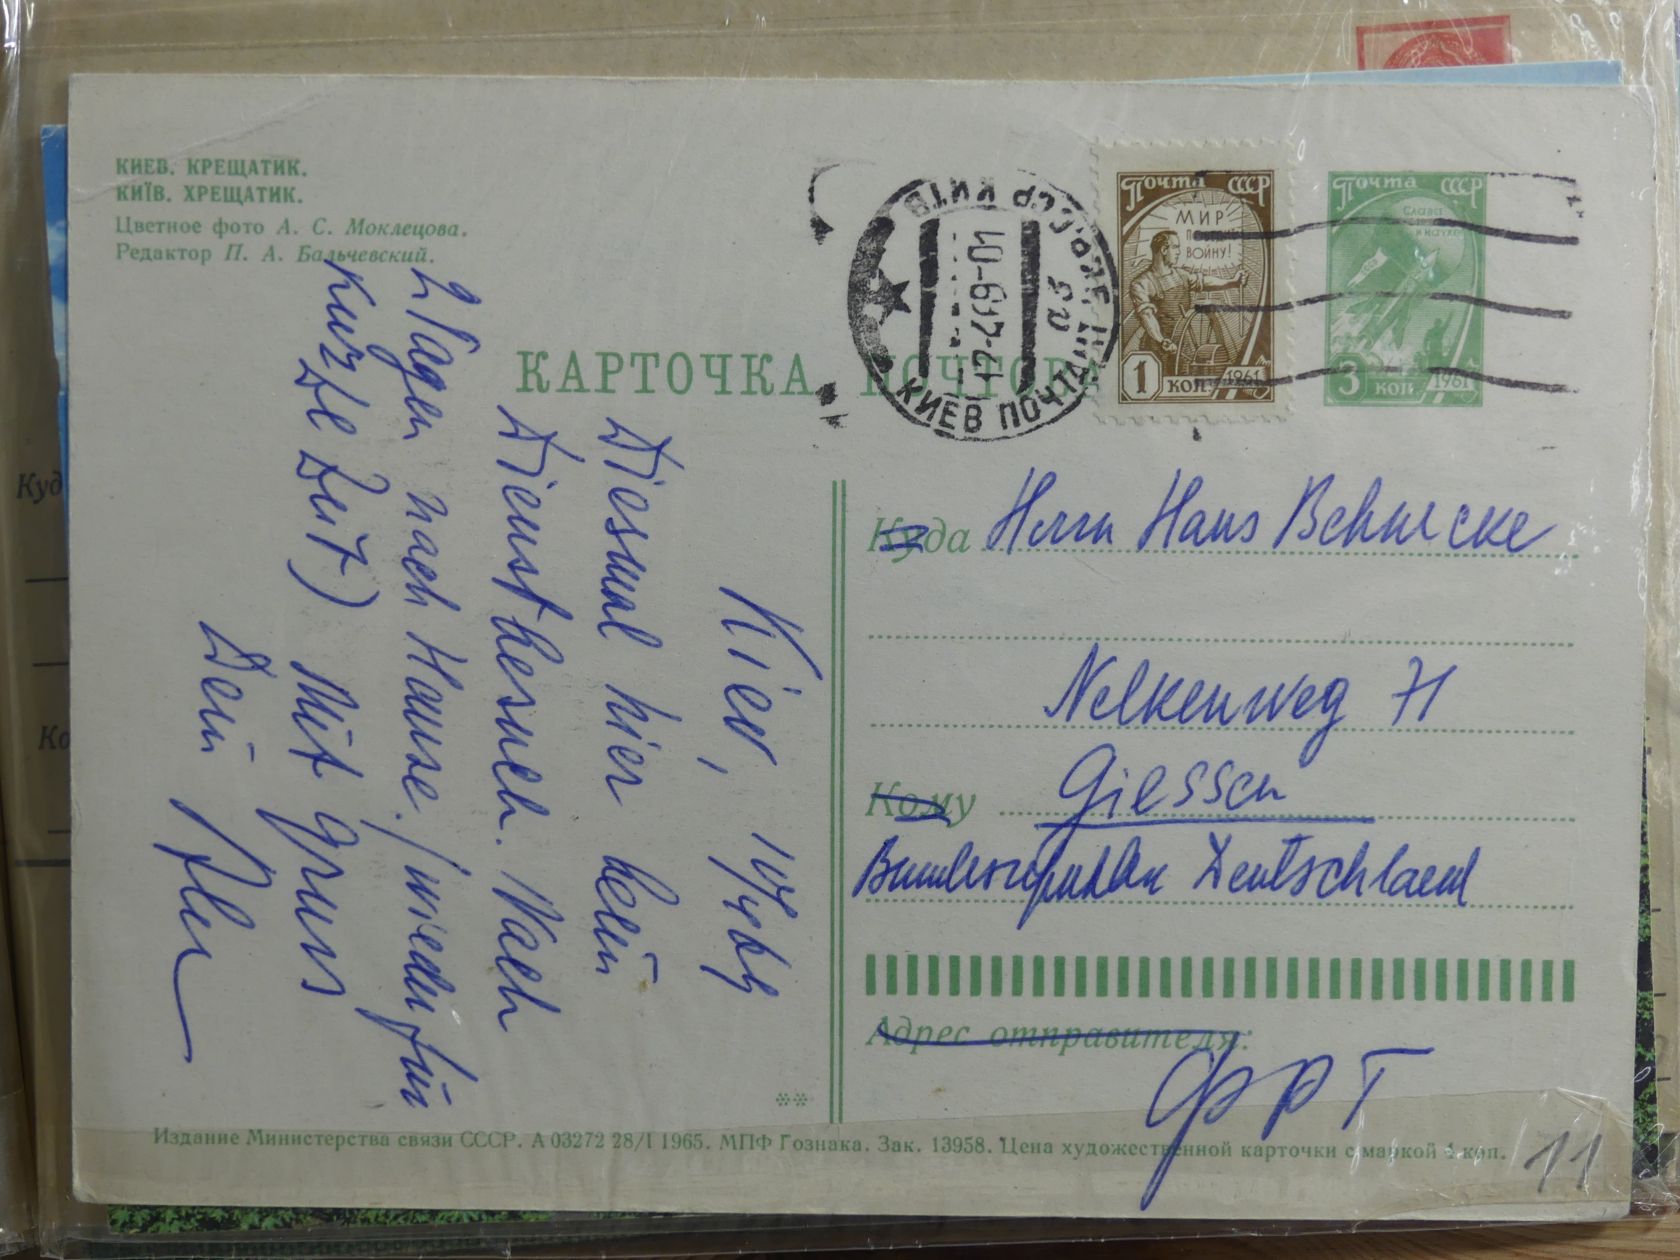 КИЕВ. КРЕЩАТИК.
КИЇВ. ХРЕЩАТИК.
Цветное фото А. С. Моклецова.
Редактор П. А. Бальчевский.
КАРТОЧКА ПОЧТОВ
КИЕВ ПОЧТАМТ
Почта СССР
МИР
ПОБЕДИТ
ВОЙНУ!
1 коп. 1961
Почта СССР
3 коп. 1961
Kiev,
Diesmal hier kein
Dienstbesuch. Nach
2 Tagen nach Hause. (wieder für
kurze Zeit) Mit Gruss
Dein
Куда Herrn Hans
Nelkenweg 71
Кому Giessen
Bundesrepublik Deutschland
Адрес отправителя:
ФРГ
Издание Министерства связи СССР. А 03272 28/I 1965. МПФ Гознака. Зак. 13958. Цена художественной карточки с маркой 4 коп.
11
Куд
Ко